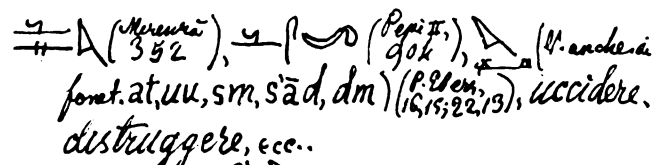 (Merenrā 352), (Pepi II, 904), (V. anche ai
fonet. at, uu, sm, s'ād, dm) (P. Ebers, 16,15; 22,13), uccidere,
distruggere, ecc..